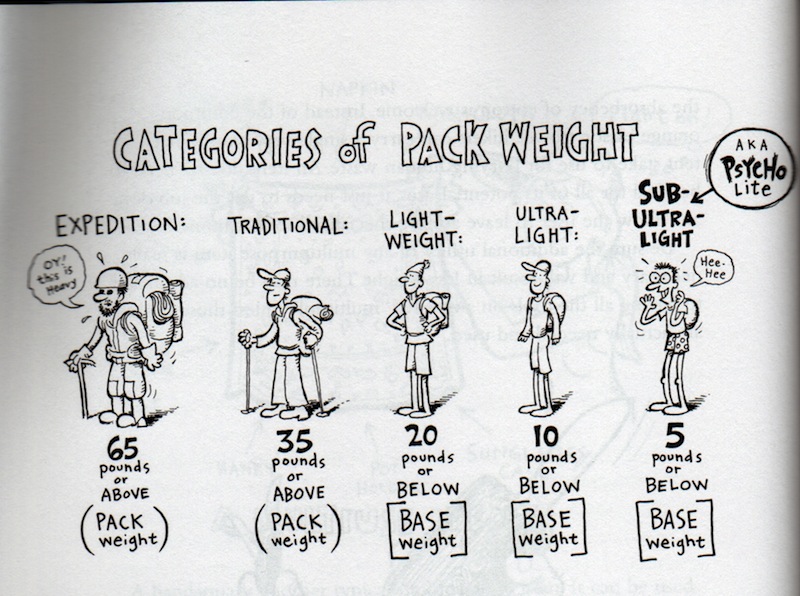 CATEGORIES of PACK WEIGHT
AKA
PSYCHO
Lite
EXPEDITION:
OY!
this is
Heavy
65
pounds
or
ABOVE
(PACK
weight)
TRADITIONAL:
35
pounds
or
ABOVE
(PACK
weight)
LIGHT-
WEIGHT:
20
pounds
or
BELOW
[BASE
weight]
ULTRA-
LIGHT:
10
pounds
or
BELOW
[BASE
weight]
SUB-
ULTRA-
LIGHT
Hee-
Hee
5
pounds
or
BELOW
[BASE
weight]